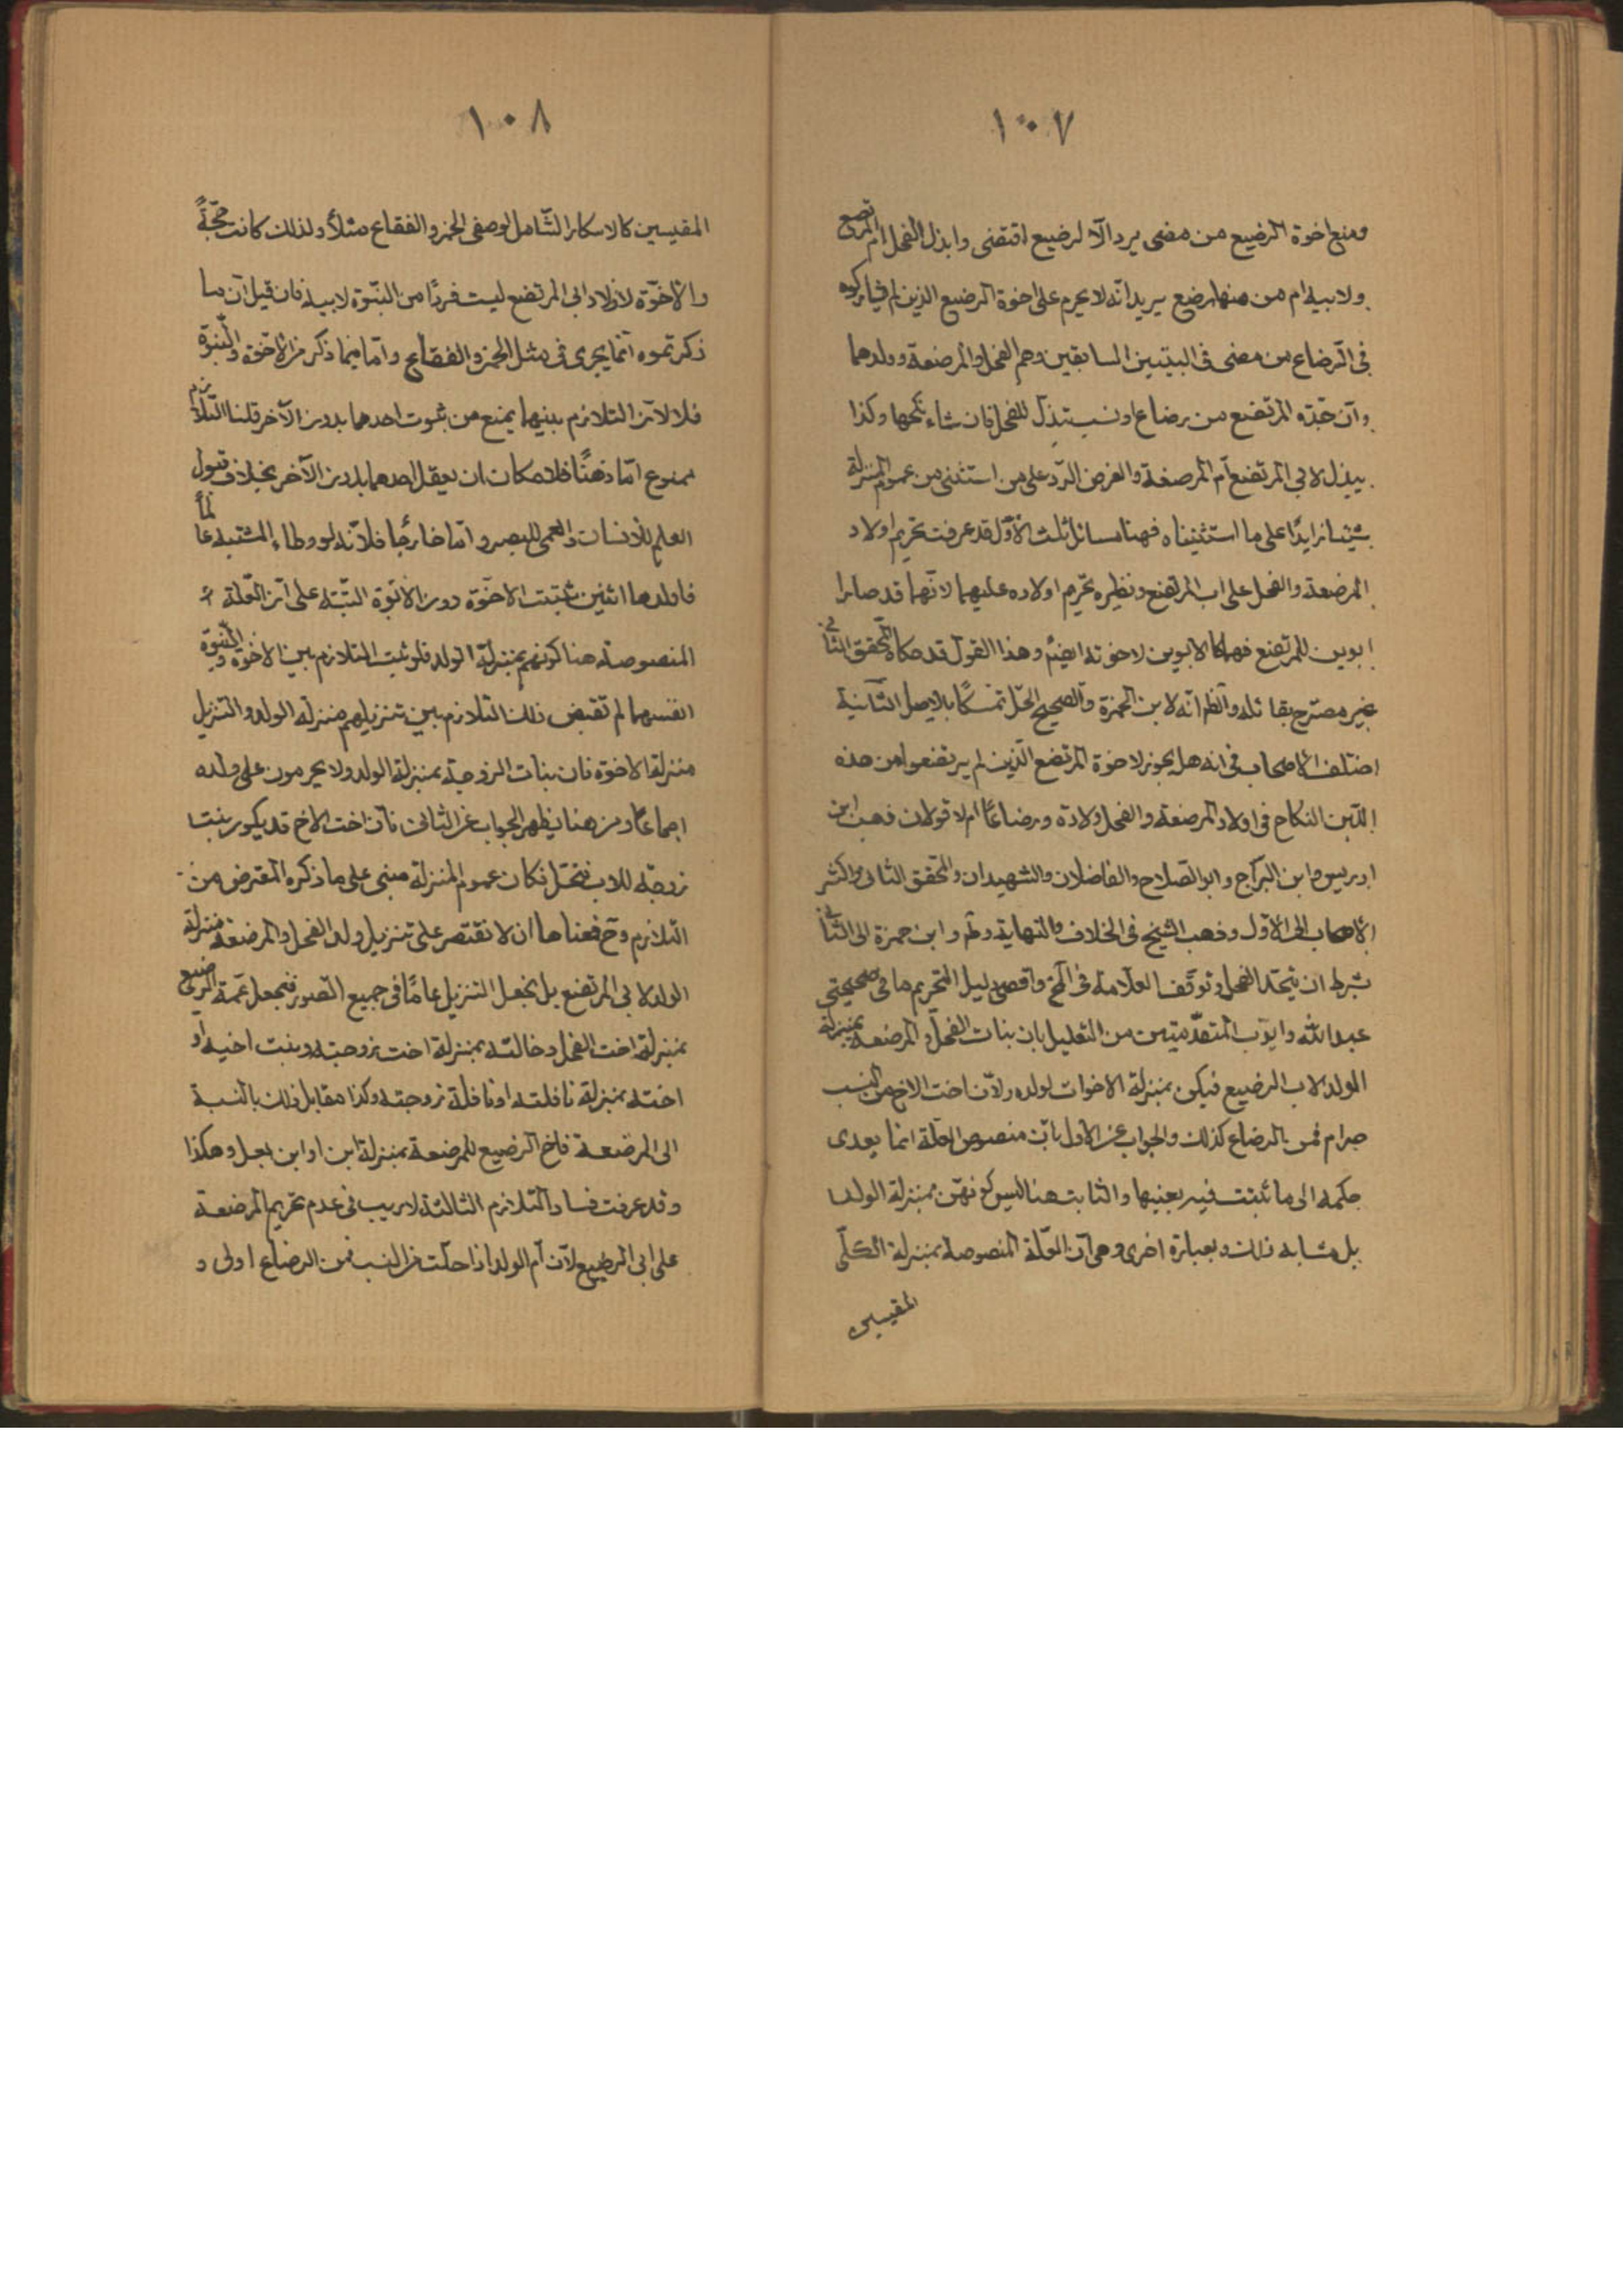 ١٠٧
ومنع اخوة الرضيع من مضى يرد الا لرضيع اقتضى وابذل الفحل ام المرتضع
ولابيه ام من منها رضع يريد انه لا يحرم على اخوة الرضيع الذين لم يشاركوه
فى الرضاع من مضى فى البيتين السابقين وهم الفحل والمرضعة وولدهما
وان جدة المرتضع من رضاع او نسب تبذل للفحل فان شاء نكحها وكذا
يبذل لابى المرتضع ام المرضعة والغرض الرد على من استثنى من عموم المنزلة
شيئا زايدًا على ما استثنيناه فهنا مسائل ثلث الاول قد عرفت تحريم اولاد
المرضعة والفحل على اب المرتضع ونظيره تحريم اولاده عليهما لانهما قد صارا
ابوين للمرتضع فهما كالابوين لاخوته ايضًا وهذا القول قد حكاه المحقق الثانى
غير مصرح بقائله والظم انه لابن الحمزة والصحيح الحل تمسكًا بالاصل الثانية
اختلف الاصحاب فى انه هل يجوز لاخوة المرتضع الذين لم يرتضعوا من هذه
اللبن النكاح فى اولاد المرضعة والفحل ولادة ورضاعًا ام لا قولان فذهب ابن
ادريس وابن البراج وابو الصلاح والفاضلان والشهيدان والمحقق الثانى واكثر
الاصحاب الى الاول وذهب الشيخ فى الخلاف والنهاية وابن حمزة الى الثانى
بشرط ان يتحد الفحل وتوقف العلامة فى واقصى دليل التحريم ما فى صحيحتى
عبد الله وايوب المتقدمتين من التعليل بان بنات الفحل والمرضعة بمنزلة
الولد لاب الرضيع فيكن بمنزلة الاخوات لولده ولان اخت الاخ من النسب
حرام فمن الرضاع كذلك والجواب عن الاول بان منصوص العلة انما يعدى
حكمه الى ما ثبتت فيه بعينها والثابت هنا ليس كونهن بمنزلة الولد
بل مشابه ذلك وبعبارة اخرى وهى ان العلة المنصوصة بمنزلة الكلى
المقيس
١٠٨
المقيسين كالاسكار الشامل لوصفى الخمر والفقاع مثلاً ولذلك كانت حجةً
والاخوة لاولاد ابى المرتضع ليست فردًا من البنوة لابيه فان قيل ان ما
ذكرتموه انما يجرى فى مثل الخمر والفقاع واما فيما ذكر من الاخوة والبنوة
فلا لان التلازم بينهما يمنع من ثبوت احدهما بدون الآخر قلنا التلازم
ممنوع اما ذهنًا فلامكان ان يعقل احدهما بدون الآخر بخلاف قبول
العلم للانسان والعمى للبصر واما خارجًا فلانه لو وطاء المشتبه عالمًا
فاولدها اثنين ثبتت الاخوة دون الابوة البتة على ان العلة
المنصوصة هنا كونهم بمنزلة الولد فلو ثبت التلازم بين الاخوة والبنوة
انفسهما لم تقتض ذلك التلازم بين تنزيلهم منزلة الولد والتنزيل
منزلة الاخوة فان بنات الزوجة بمنزلة الولد ولا يحرمون على ولده
اجماعًا ومن هنا يظهر الجواب عن الثانى فان اخت الاخ قد يكون بنت
زوجة للاب فتحل فكان عموم المنزلة مبنى على ما ذكره المعترض من
التلازم وح فمعناها ان لا نقتصر على تنزيل ولد الفحل والمرضعة منزلة
الولد لابى المرتضع بل نجعل التنزيل عامًا فى جميع الصور فنجعل عمة الرضيع
بمنزلة اخت الفحل وخالته بمنزلة اخت زوجته وبنت اخيه او
اخته بمنزلة نافلته او نافلة زوجته وكذا مقابل ذلك بالنسبة
الى المرضعة فاخ الرضيع للمرضعة بمنزلة ابن او ابن بعل وهكذا
وقد عرفت فساد التلازم الثالثة لا ريب فى عدم تحريم المرضعة
على ابى الرضيع لان ام الولد اذا حلت من النسب فمن الرضاع اولى و